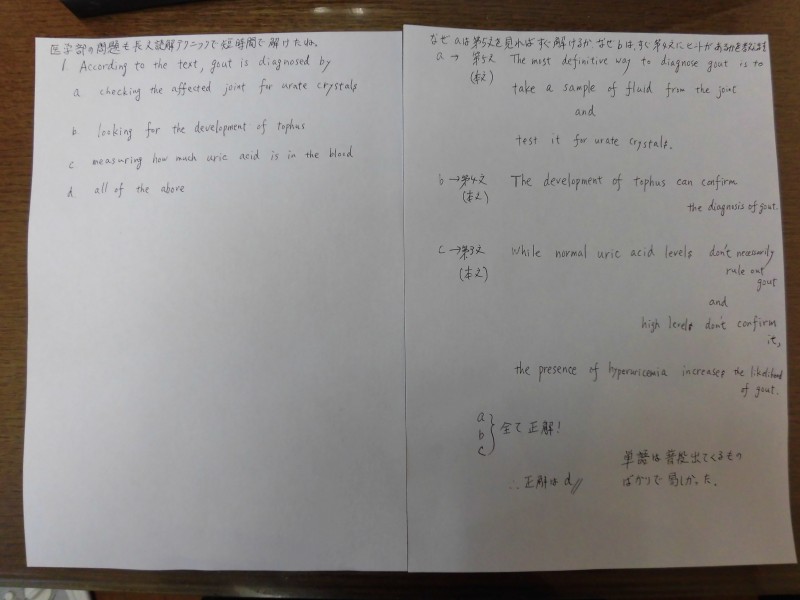 医学部の問題も長文読解テクニックで短時間で解けたね。
1. According to the text, gout is diagnosed by
a checking the affected joint for urate crystals
b looking for the development of tophus
c measuring how much uric acid is in the blood
d. all of the above
なぜaは第5文を見ればすぐ解けるか、なぜbは、すぐ第4文にヒントがあるかを教えます
a → 第5文 The most definitive way to diagnose gout is to
(本文) take a sample of fluid from the joint
and
test it for urate crystals.
b → 第4文 The development of tophus can confirm
(本文) the diagnosis of gout.
C → 第3文 While normal uric acid levels don't necessarily
(本文) rule out
gout
and
high levels don't confirm
it,
the presence of hyperuricemia increases the likelihood
of gout.
a
b 全て正解!
c
∴正解はd
単語は普段出てくるもの
ばかりで易しかった。